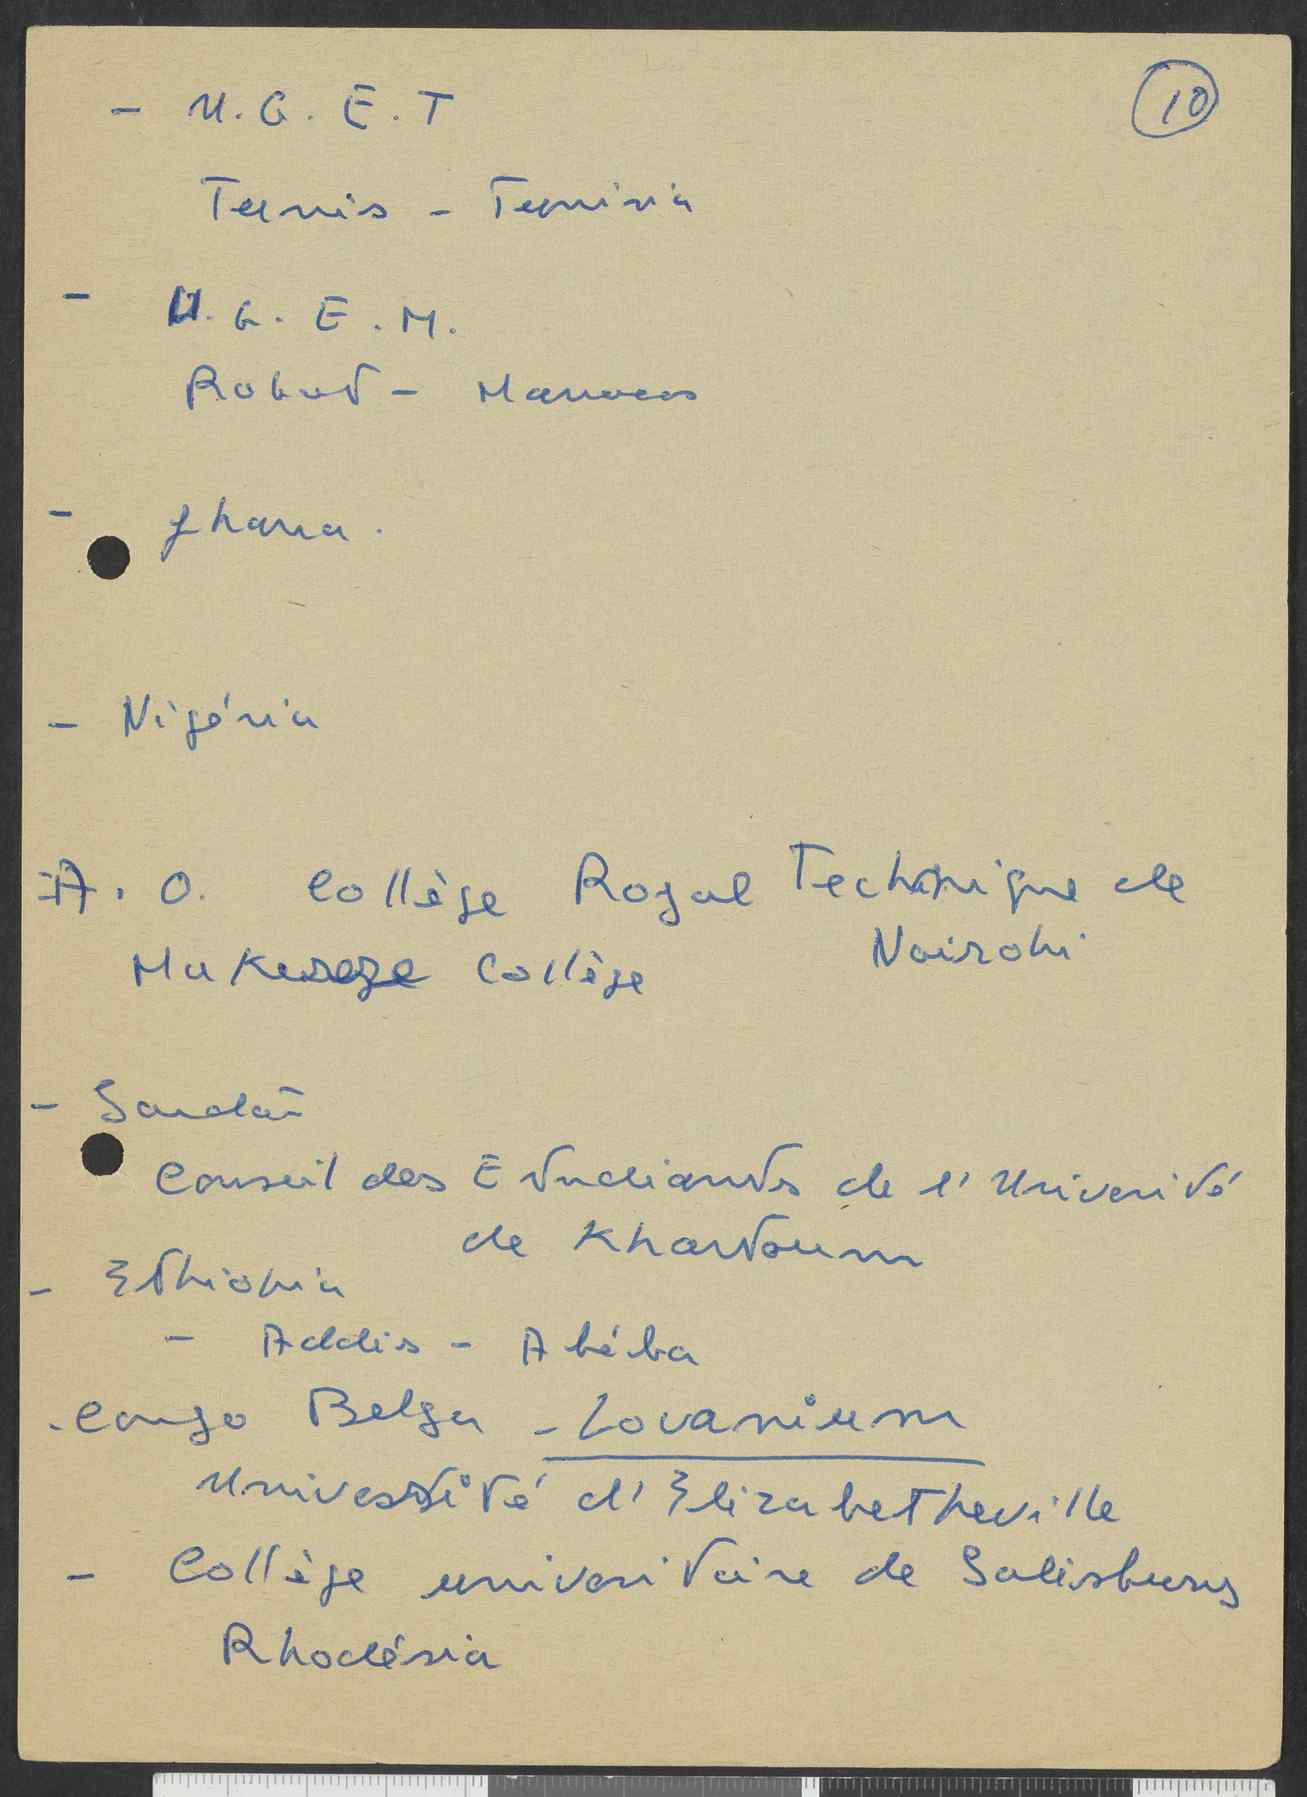 10
- U.G.E.T
Tunis - Tunisia
- U.G.E.M.
Rabat - Marrocos
- Ghana.
- Nigéria
- A.O. Collège Royal Technique de
Nairobi
Makerere Collège
- Soudan
Conseil des Etudiants de l'Université
de Khartoum
- Ethiopia
- Addis-Abéba
- Congo Belga - Lovanium
Université d'Elizabetheville
- Collège universitaire de Salisbury
Rhodésia